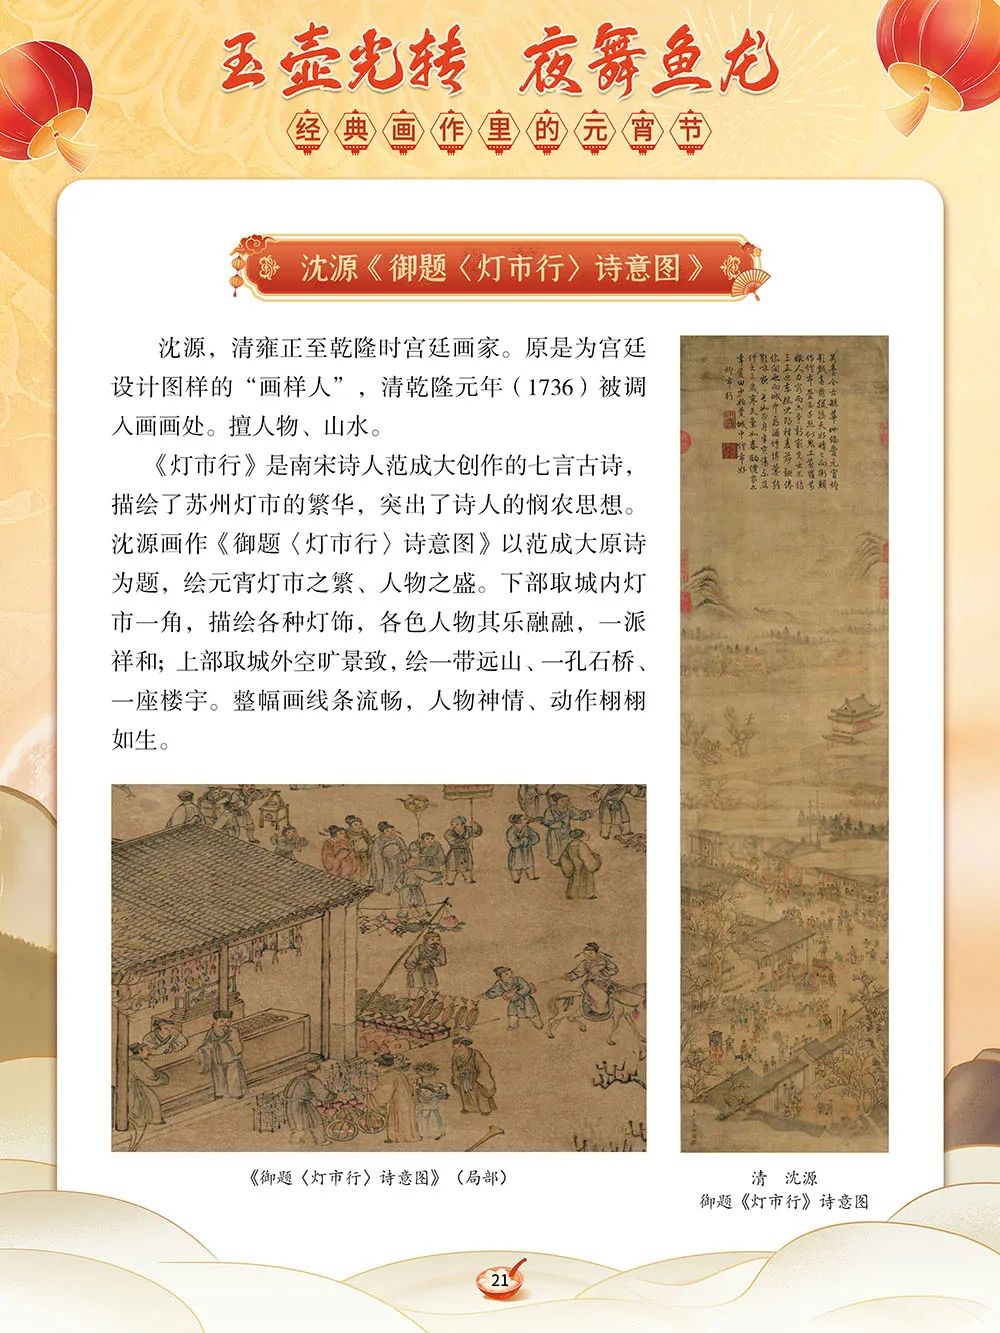 玉壶光转 夜舞鱼龙
经典画作里的元宵节
沈源《御题〈灯市行〉诗意图》
沈源，清雍正至乾隆时宫廷画家。原是为宫廷
设计图样的“画样人”，清乾隆元年（1736）被调
入画画处。擅人物、山水。
《灯市行》是南宋诗人范成大创作的七言古诗，
描绘了苏州灯市的繁华，突出了诗人的悯农思想。
沈源画作《御题〈灯市行〉诗意图》以范成大原诗
为题，绘元宵灯市之繁、人物之盛。下部取城内灯
市一角，描绘各种灯饰，各色人物其乐融融，一派
祥和；上部取城外空旷景致，绘一带远山、一孔石桥、
一座楼宇。整幅画线条流畅，人物神情、动作栩栩
如生。
《御题〈灯市行〉诗意图》（局部）
清 沈源
御题《灯市行》诗意图
21